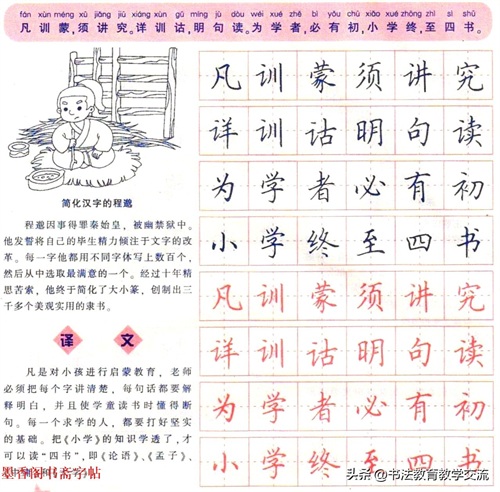 fán xùn méng xū jiǎng jiū xiáng xùn gǔ míng jù dòu wéi xué zhě bì yǒu chū xiǎo xué zhōng zhì sì shū
凡训蒙,须讲究。详训诂,明句读。为学者,必有初,小学终,至四书。
简化汉字的程邈
程邈因事得罪秦始皇，被幽禁狱中。
他发誓将自己的毕生精力倾注于文字的改
革。每一字他都用不同字体写上数百个，
然后从中选取最满意的一个。经过十年精
思苦索，他终于简化了大小篆，创制出三
千多个美观实用的隶书。
译文
凡是对小孩进行启蒙教育，老师
必须把每个字讲清楚，每句话都要解
释明白，并且使学童读书时懂得断
句。每一个求学的人，都要打好坚实
的基础。把《小学》的知识学透了，才
可以读“四书”，即《论语》、《孟子》、
凡训蒙须讲究
详训诂明句读
为学者必有初
小学终至四书
凡训蒙须讲究
详训诂明句读
为学者必有初
小学终至四书
头条 @书法教育教学交流